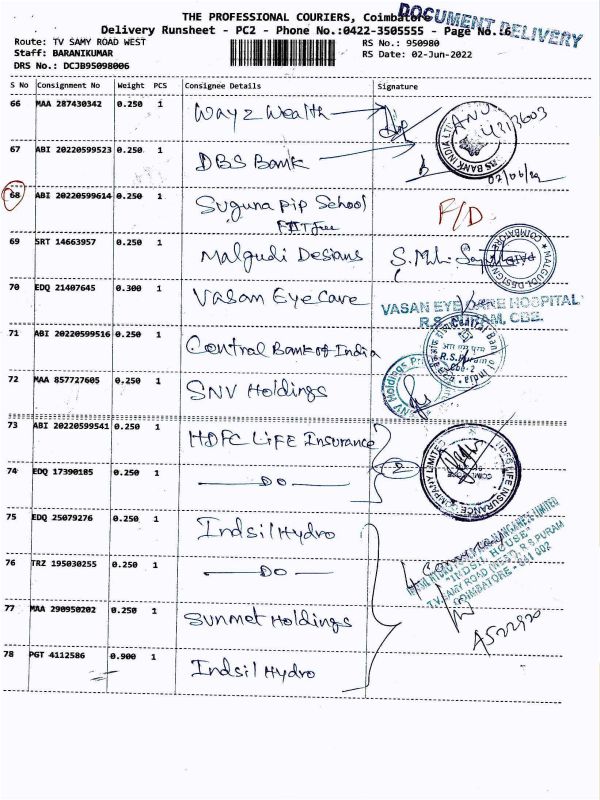 THE PROFESSIONAL COURIERS, Coimbatore
DOCUMENT DELIVERY
Delivery Runsheet - PC2 - Phone No.:0422-3505555 - Page No.:6
Route: TV SAMY ROAD WEST
RS No.: 950980
Staff: BARANIKUMAR
RS Date: 02-Jun-2022
DRS No.: DCJB95098006
S No Consignment No Weight PCS Consignee Details Signature
66 MAA 287430342 0.250 1 Wayz Wealth
ANU
43113603
67 ABI 20220599523 0.250 1 DBS Bank
02/06/22
68 ABI 20220599614 0.250 1 Suguna Pip School
F/D
69 SRT 14663957 0.250 1 Malgudi Designs
MALGUDI DESIGN
COIMBATORE
70 EDQ 21407645 0.300 1 Vasan Eye Care
VASAN EYE CARE HOSPITAL
R.S. PURAM, CBE.
71 ABI 20220599516 0.250 1 Central Bank of India
Central Bank of India
R.S.Puram
Cbe-2
72 MAA 857727605 0.250 1 SNV Holdings
73 ABI 20220599541 0.250 1 HDFC Life Insurance
HDFC LIFE INSURANCE COMPANY LIMITED
74 EDQ 17390185 0.250 1 DO
2
75 EDQ 25079276 0.250 1 Indsil Hydro
76 TRZ 195030255 0.250 1 DO
"INDSIL HOUSE"
T.V. SAMY ROAD (WEST), R S PURAM
COIMBATORE - 641 002
77 MAA 290950202 0.250 1 Sunmet Holdings
A522920
78 PGT 4112586 0.900 1 Indsil Hydro